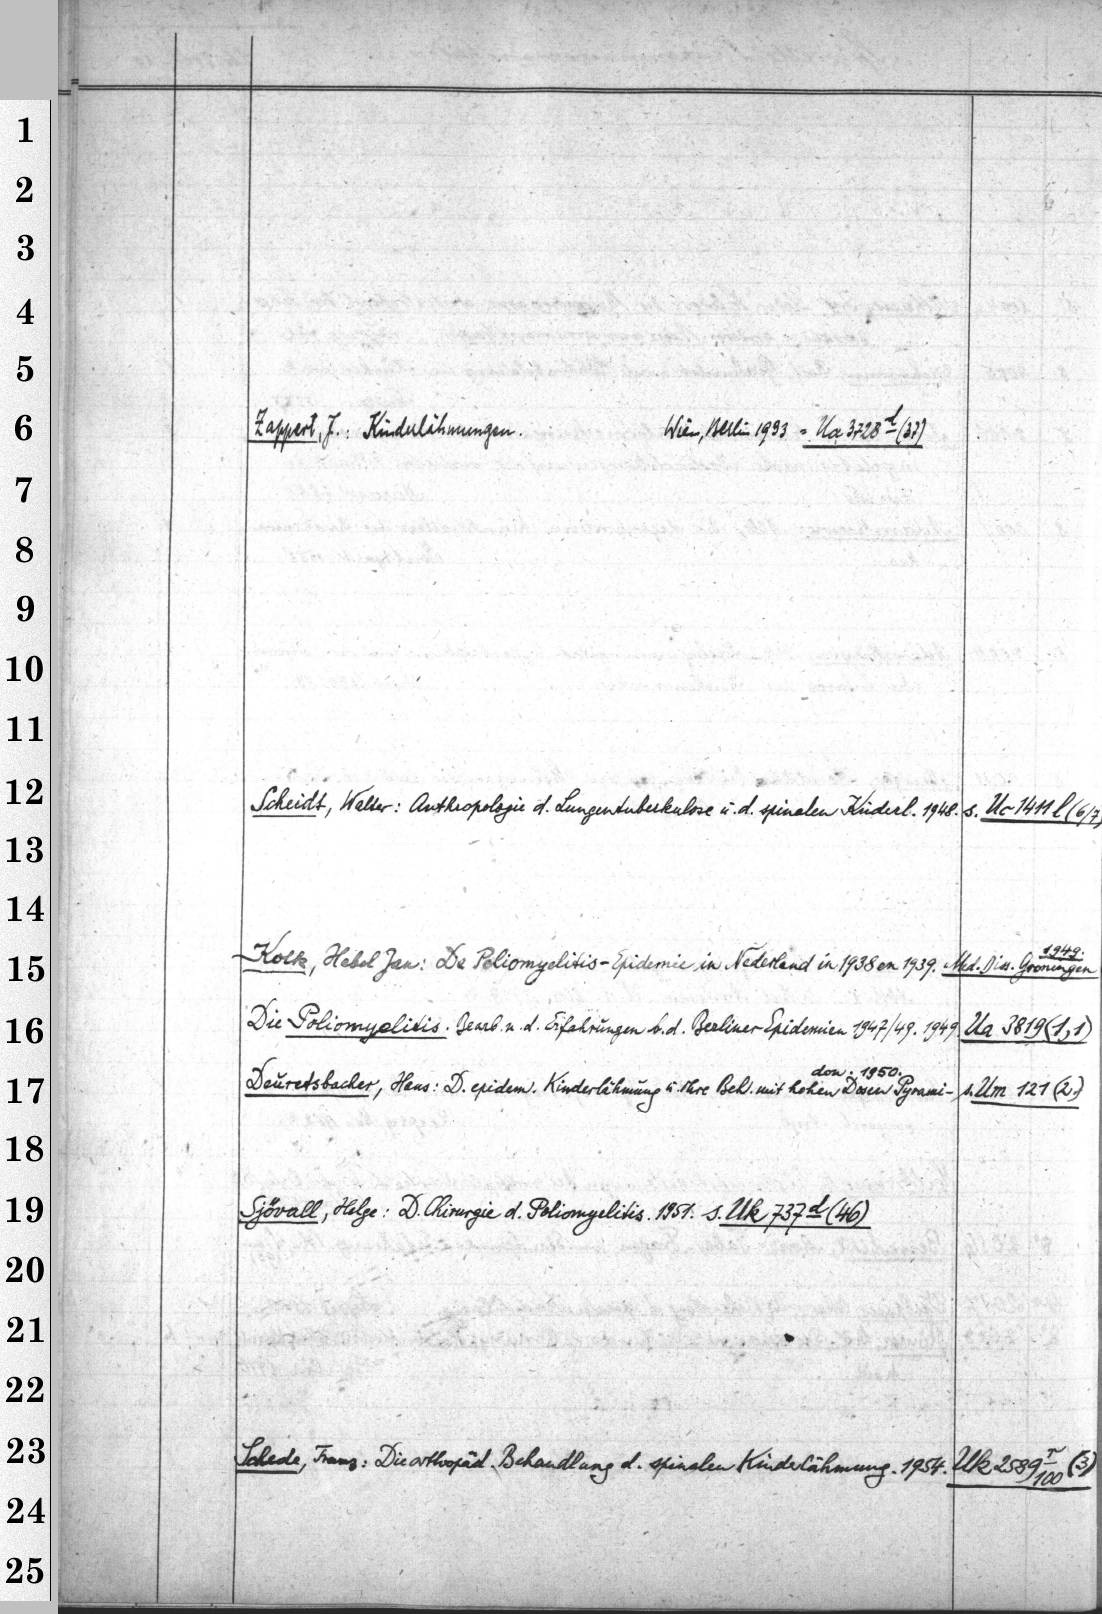 1
2
3
4
5
6
Zappert, J.: Kinderlähmungen. Wien, Berlin 1933 = Ua 3728 d (37)
7
8
9
10
11
12
Scheidt, Walter: Anthropologie d. Lungentuberkulose u. d. spinalen Kinderl. 1948. s. Uc 1411 l (6/7)
13
14
15
Kolk, Hebel Jan: De Poliomyelitis-Epidemie in Nederland in 1938 en 1939. Med. Diss. Groningen 1949.
16
Die Poliomyelitis. Bearb. n. d. Erfahrungen b. d. Berliner Epidemien 1947/49. 1949 Ua 3819 (1,1)
17
Deuretsbacher, Hans: D. epidem. Kinderlähmung u. ihre Beh. mit hohen Dosen Pyrami-don. 1950. s. Um 121 (2.)
18
19
Sjövall, Helge: D. Chirurgie d. Poliomyelitis. 1951. s. Uk 737 d (46)
20
21
22
23
Schede, Franz: Die orthopäd. Behandlung d. spinalen Kinderlähmung. 1954. Uk 2589 r/100 (3)
24
25